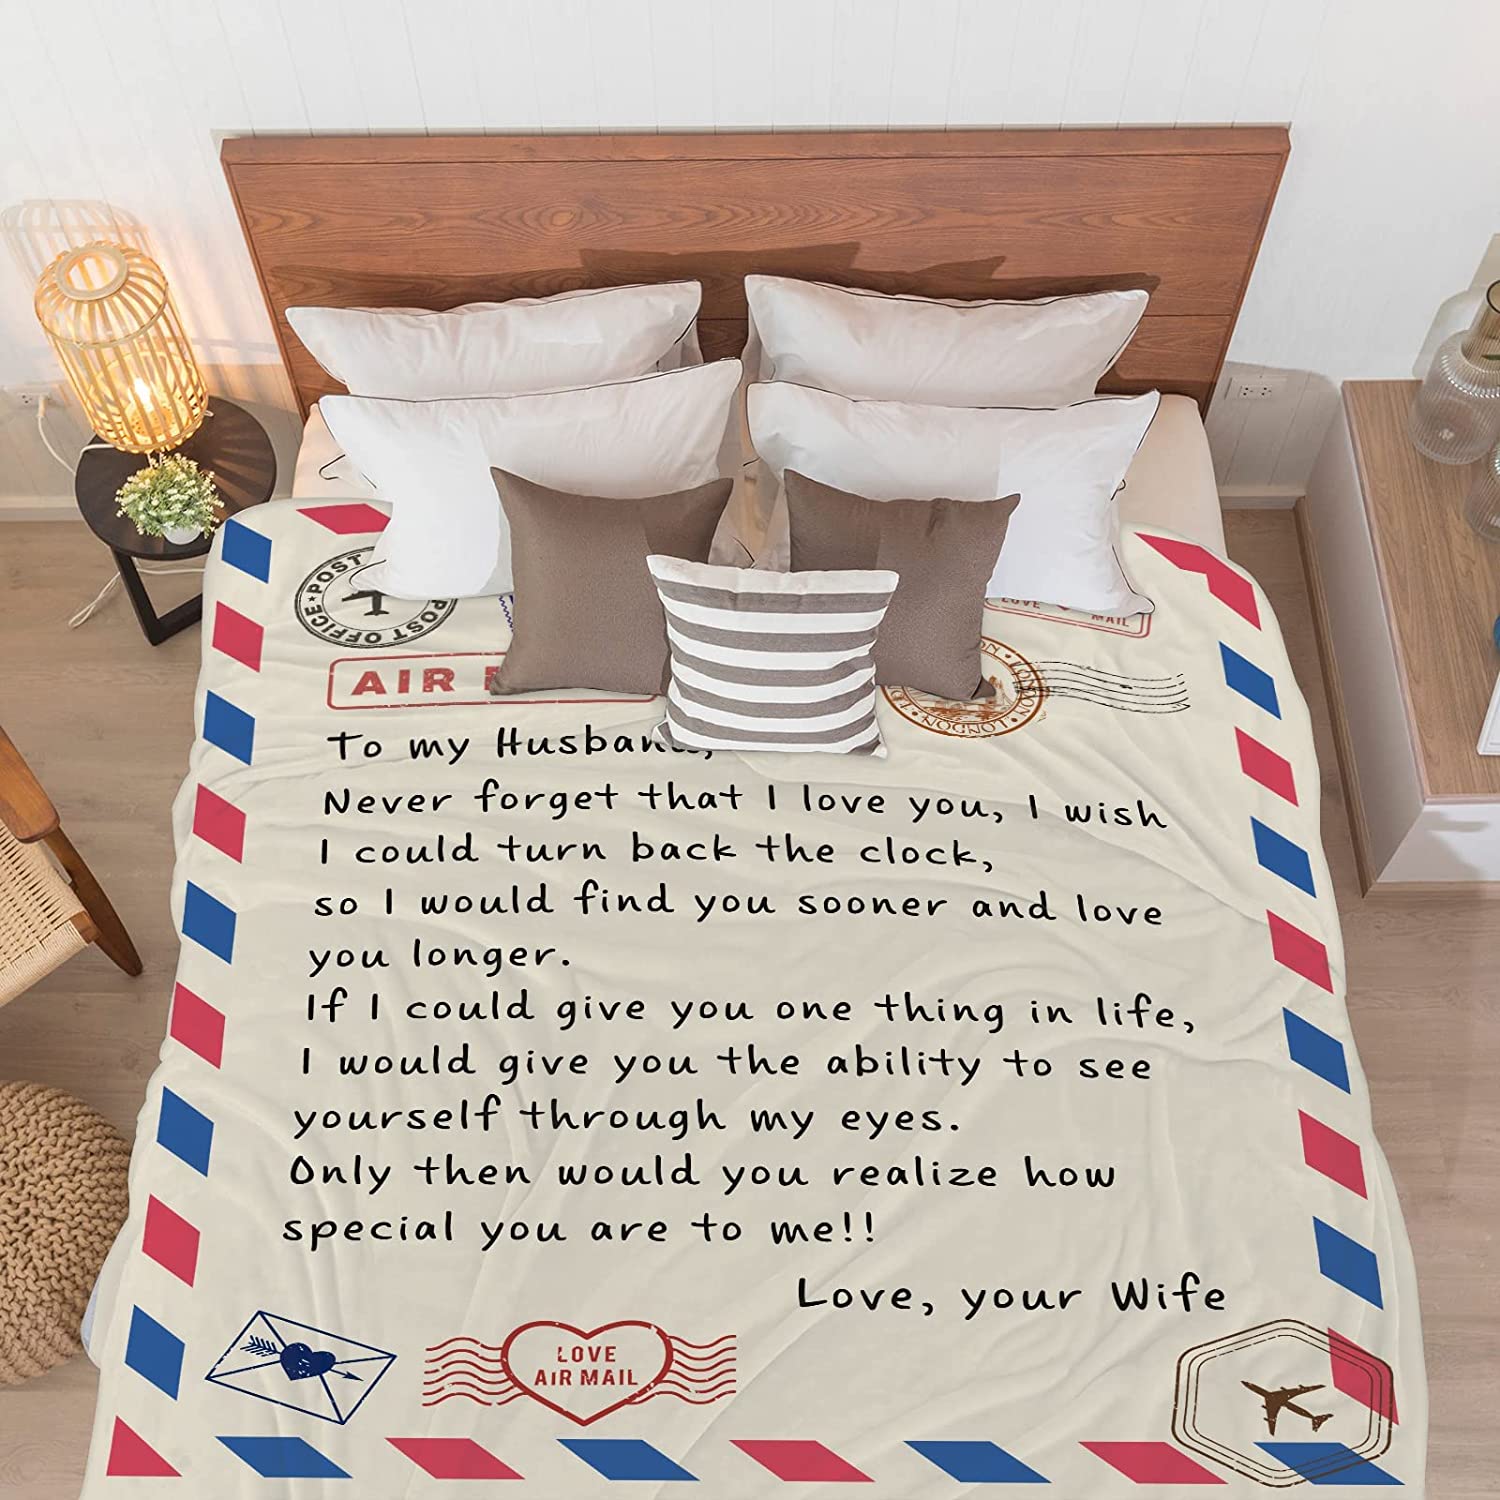 POST OFFICE POST OFFICE
LOVE MAIL
AIR
LONDON LONDON
To my Husband,
Never forget that I love you, I wish
I could turn back the clock,
so I would find you sooner and love
you longer.
If I could give you one thing in life,
I would give you the ability to see
yourself through my eyes.
Only then would you realize how
special you are to me!!
Love, your Wife
LOVE
AIR MAIL